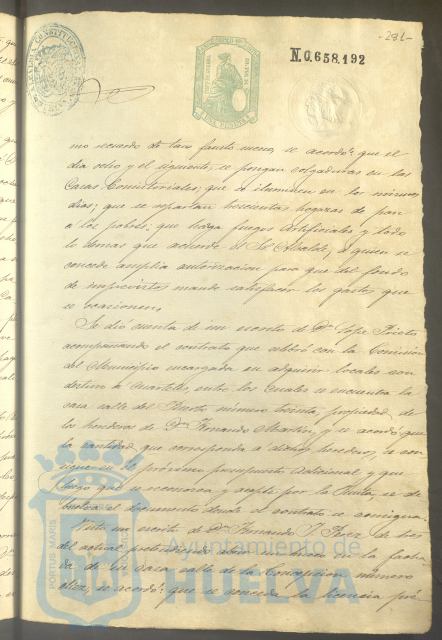 -281-
N.0.658.192
mo recuerdo de tan fausto suceso, se acordó: que el
dia ocho y el siguiente, se pongan colgaduras en las
Casas Consistoriales; que se iluminen en los mismos
dias; que se repartan trescientas hogazas de pan
a los pobres; que haya fuegos artificiales y todo
lo demas que acuerde el Sr Alcalde, á quien se
concede amplia autorizacion para que del fondo
de imprevistos mande satisfacer los gastos que
se ocasionen.
Se dió cuenta de un escrito de Dn Jose
acompañando el contrato que celebró con la Comision
del Municipio encargada en adquirir locales con
destino a Cuarteles, entre los cuales se encuentra la
casa calle del Puerto número treinta, propiedad de
los herederos de Dn Fernando Martin, y se acordó: que
la cantidad que corresponda a dichos herederos, se con
signe en el próximo presupuesto adicional y que
luego que se reconozca y acepte por la Junta, se de
vuelva el documento donde el contrato se consigna.
Visto un escrito de Dn Fernando de tres
del actual pretendiendo en la facha
da de su casa calle de la Concepcion número
diez, se acordó: que se conceda la licencia pré
PORTUS MARIS
Ayuntamiento de
HUELVA